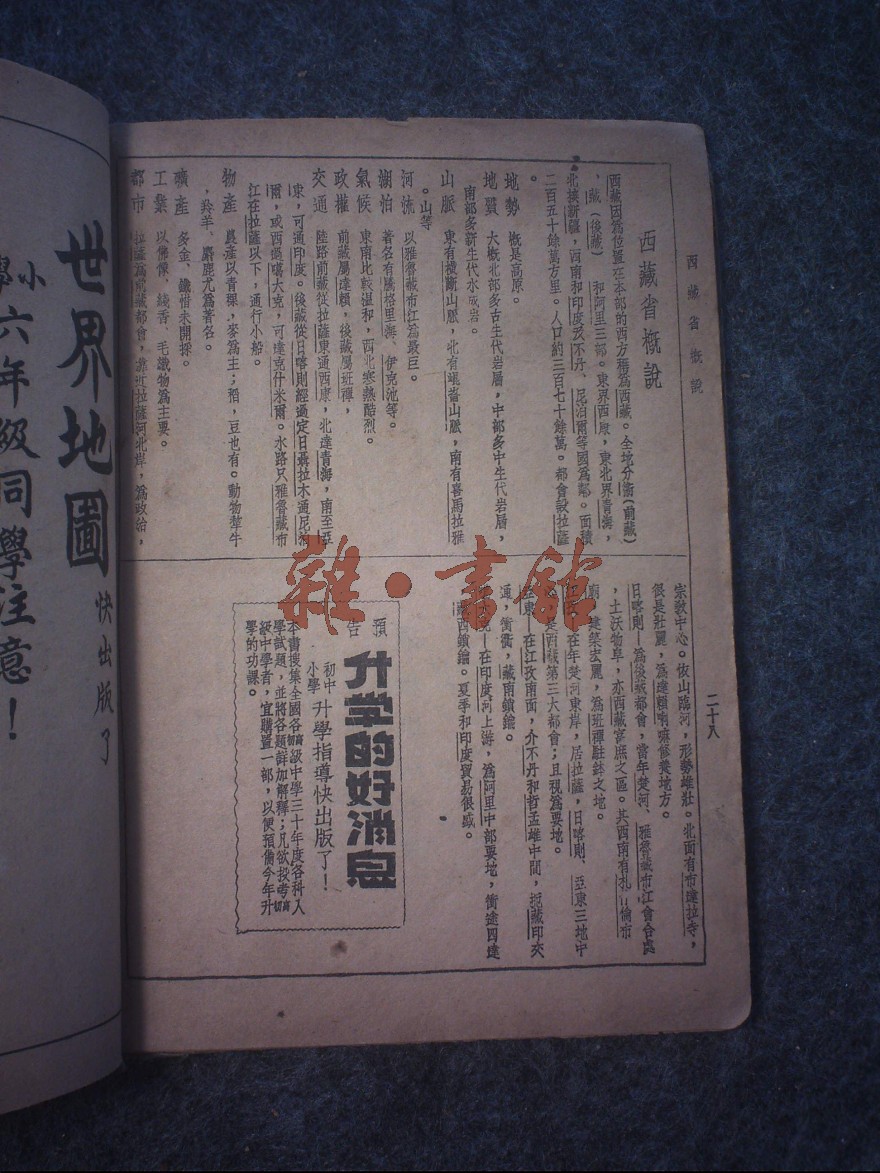 西藏省概說
二十八
西藏省概說
西藏因為位置在本部的西方稱為西藏。全地分衞(前藏)
，藏(後藏) 和阿里三部。東界西康，東北界青海，
北接新疆，西南和印度及不丹、尼泊爾等國為鄰。面積
二百五十餘萬方里。人口約三百七十餘萬。都會設拉薩
。
地勢 概是高原。
地質 大概北部多古生代岩層，中部多中生代岩層，
南部多新生代水成岩。
山脈 東有橫斷山脈，北有崐崙山脈，南有喜馬拉雅
山等。
河流 以雅魯藏布江為最巨。
湖泊 著名有騰格里海、伊克池等。
氣候 東南比較温和，西北寒熱酷烈。
政權 前藏屬達賴，後藏屬班禪，
交通 陸路前藏從拉薩東通西康，北達青海，南至亞
東，可通印度。後藏從日喀則經過定日聶拉木通尼泊
爾，或西過噶大克，可達克什米爾。水路只雅魯藏布
江在拉薩以下，通行小船。
物產 農產以青稞，麥為主；稻，豆也有。動物犂牛
、羚羊、麝鹿尤為著名。
礦產 多金、鐵惜未開採。
工業 以佛像、綫香、毛織物為主要。
都市 拉薩為前藏都會，靠近拉薩河北岸，為政治，
宗敎中心。依山臨河，形勢雄壯。北面有布達拉寺，
很是壯麗，為達賴喇嘛修養地方。
日喀則—為後藏都會，當年楚河、雅魯藏布江會合處
，土沃物阜，亦西藏富庶之區。其西南有扎什倫布
廟，建築宏麗，為班禪駐鉢之地。
在年楚河東岸，居拉薩，日喀則、亞東三地中
西藏第三大都會；且視為要地。
東—在江孜南面，介不丹和哲孟雄中間，扼藏印交
通，衝衢，藏南鎖鑰。
—在印度河上游，為阿里中部要地，衝途四達
藏西鎖鑰。夏季和印度貿易很盛。
預告
升学的好消息
初中
小學
升學指導快出版了！
本書搜集全國各初高級中學三十年度各科入
學試題，並將各題詳加解釋；凡欲投考初高
級中學者，宜購置一部，以便預備今年升
學的功課。
世界地圖快出版了
小學六年級同學注意！
雜·書館